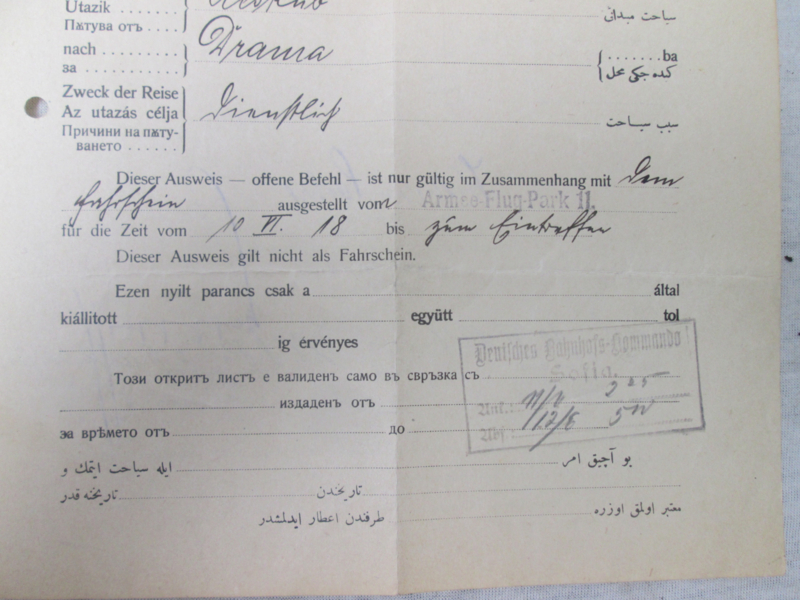 Utazik Uesküb سیاحت مبدائی
Пѫтува отъ
nach Drama ba
за كیده جكی محل
Zweck der Reise
Az utazás célja Dienstlich سبب سیاحت
Причини на пѫту-
ването
Dieser Ausweis — offene Befehl — ist nur gültig im Zusammenhang mit dem
Fahrschein ausgestellt vom Armee-Flug-Park 11.
für die Zeit vom 10 VI. 18 bis zum Eintreffen
Dieser Ausweis gilt nicht als Fahrschein.
Ezen nyilt parancs csak a által
kiállitott együtt tol
ig érvényes
Deutsches Bahnhofs-Kommando
Sofia.
Този открить листъ е валиденъ само въ свръзка съ
Ank.: 11/6 2
издаденъ отъ
Abf.: 12/6 5
за врѣмето отъ до
بو آچیق امر ایله سیاحت ایتمك و
تاریخندن تاریخنه قدر
معتبر اولمق اوزره طرفندن اعطار ایدلمشدر